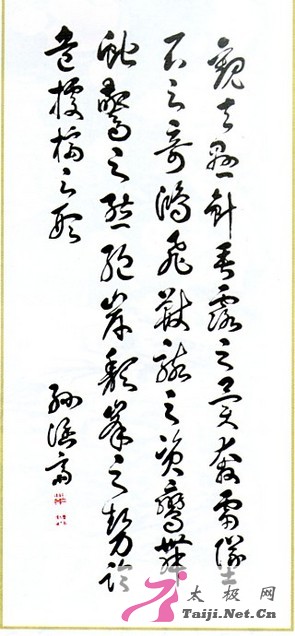 觀夫懸針垂露之異奔雷墜
石之奇鴻飛獸駭之資鸞舞
蛇驚之態絕岸頹峯之勢臨
危據槁之形
孫
太极网
Taiji.Net.Cn